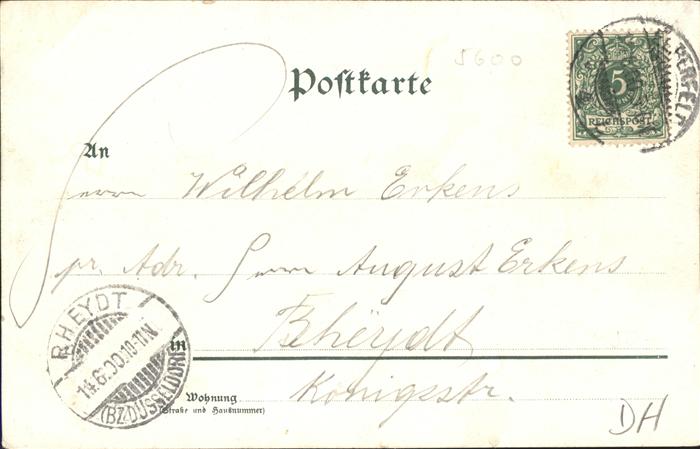 5600
Postkarte
5
REICHSPOST
ELBERFELD
An
Herrn Wilhelm Erkens
pr. Adr. Herrn August Erkens
in Rhëydt
Wohnung Königsstr.
(Straße und Hausnummer)
RHEYDT
10-11N.
(BZ. DÜSSELDORF)
DH